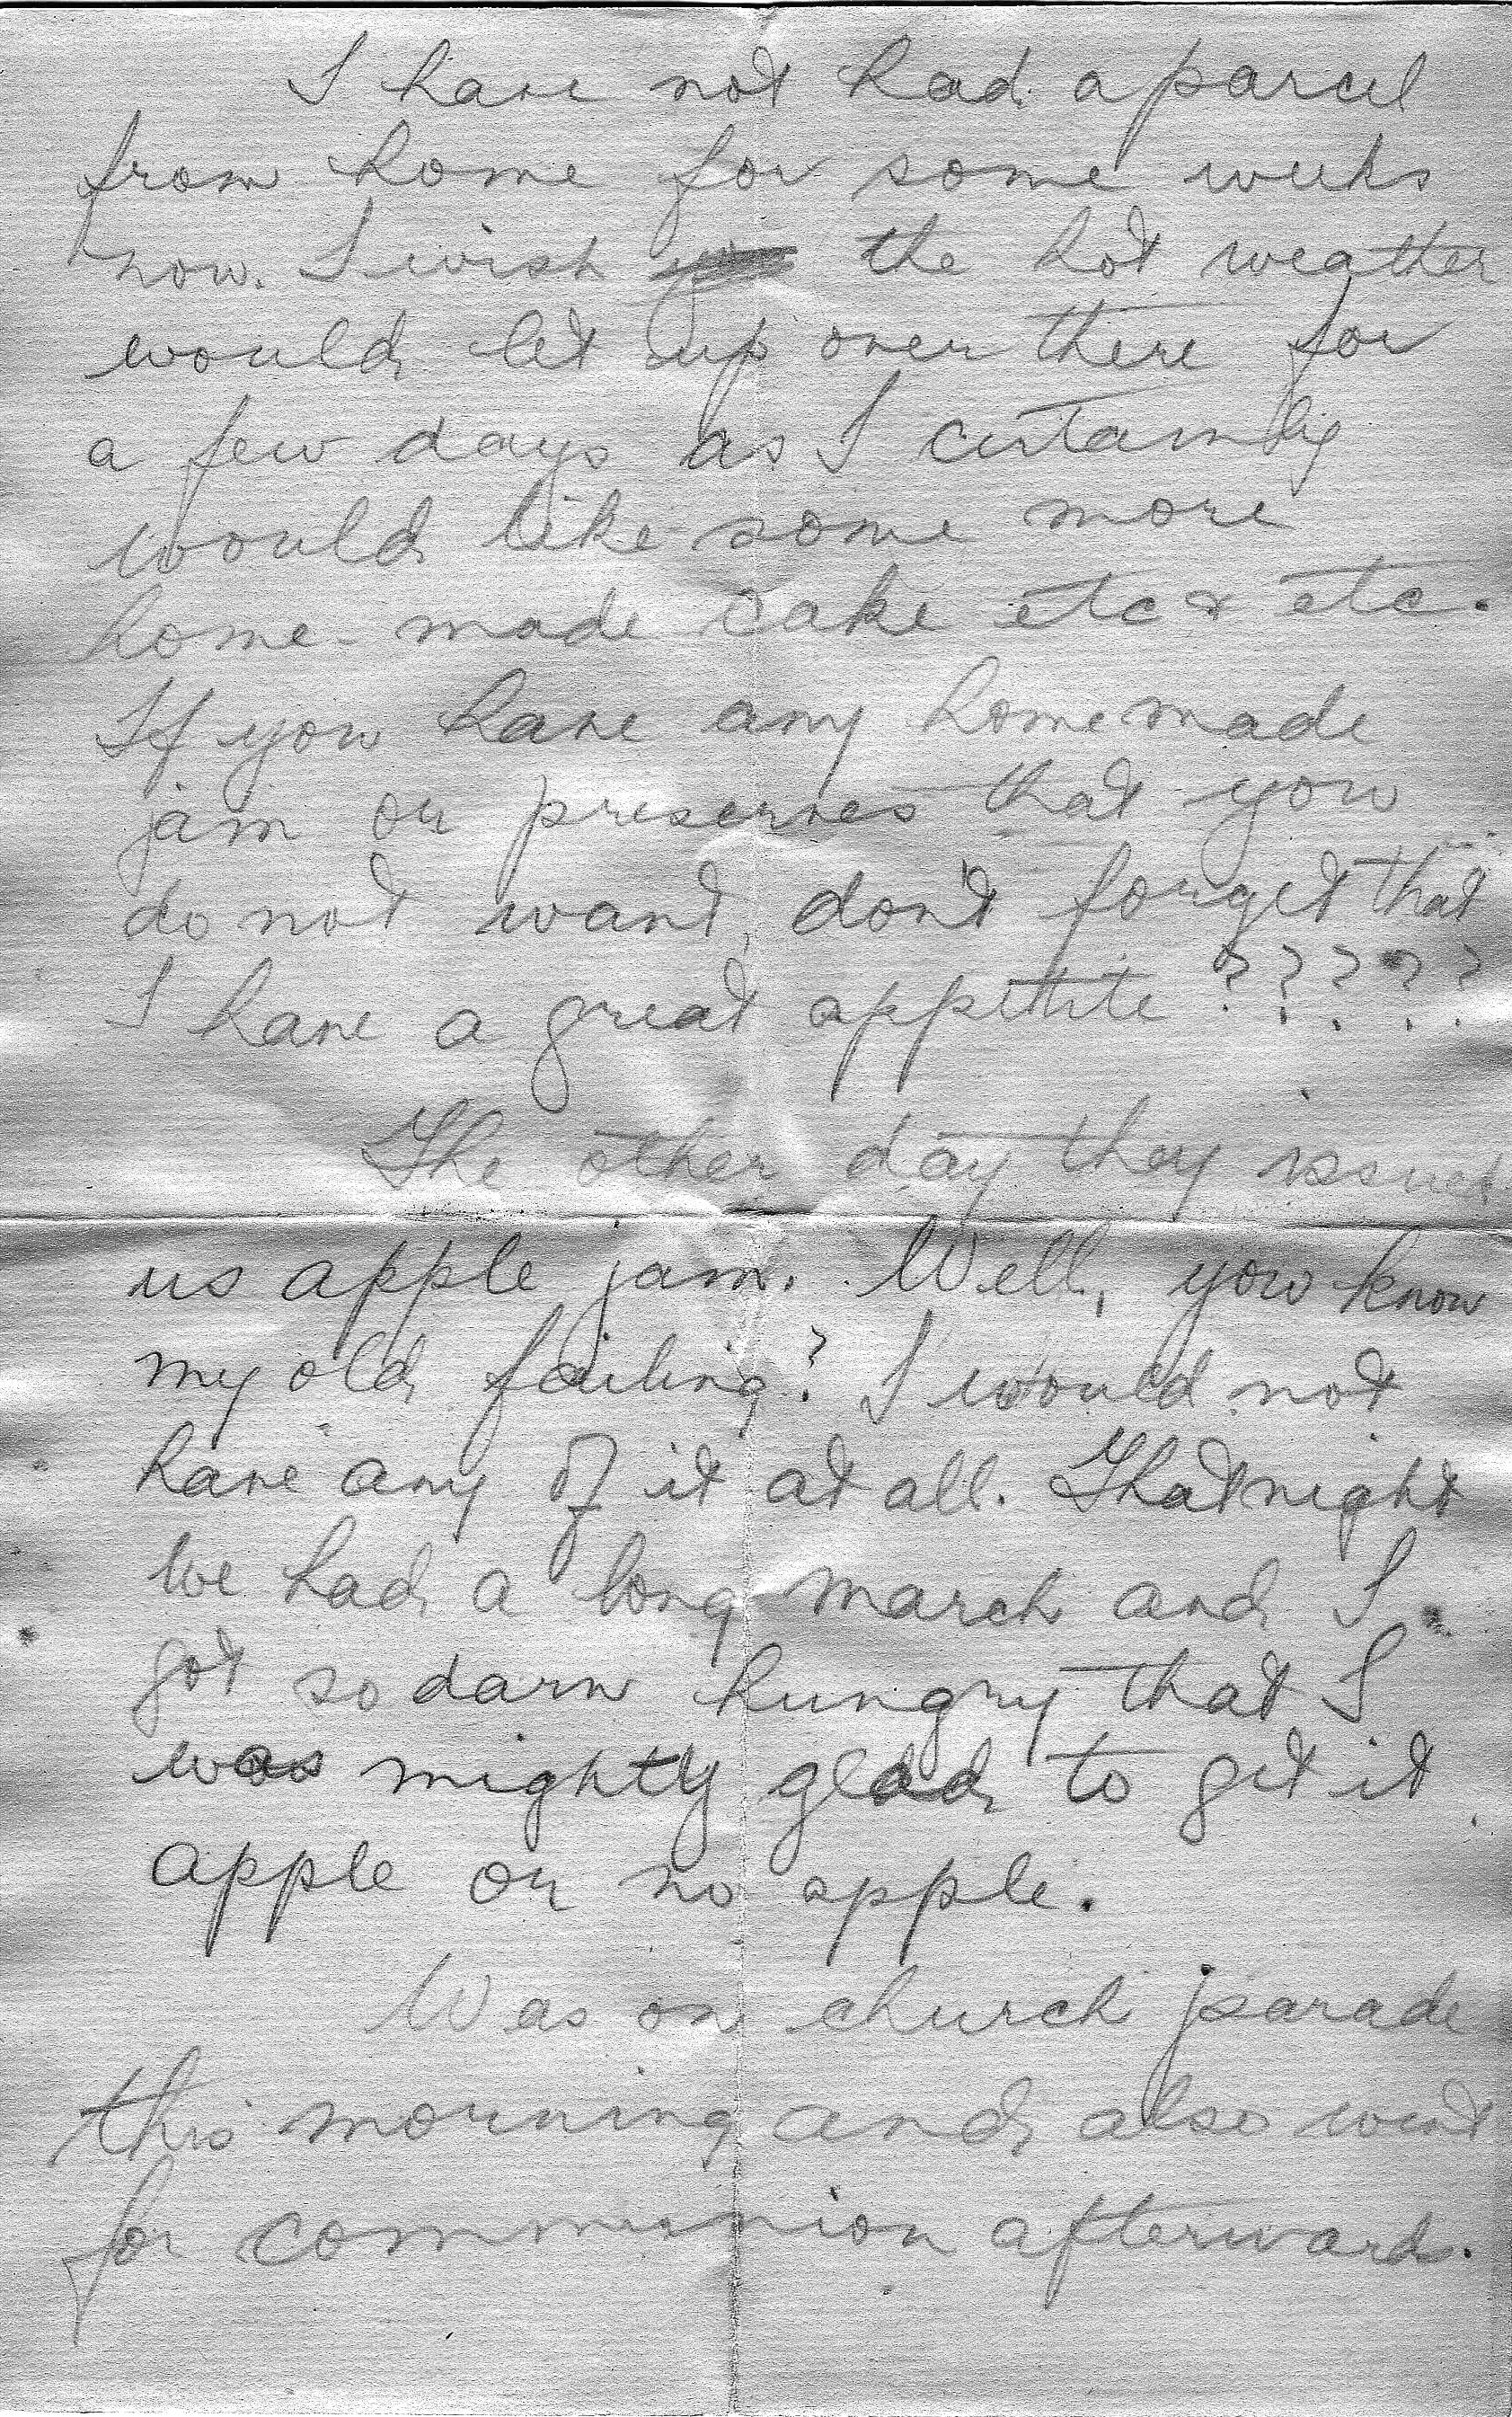 I have not had a parcel
from home for some weeks
now. I wish the hot weather
would let up over there for
a few days as I certainly
would like some more
home-made cake etc & etc.
If you have any homemade
jam or preserves that you
do not want, don't forget that
I have a great appetite ?????
The other day they issued
us apple jam. Well, you know
my old failing? I would not
have any of it at all. That night
we had a long march and I
got so darn hungry that I
was mighty glad to get it
apple or no apple.
Was on church parade
this morning and also went
for communion afterward.